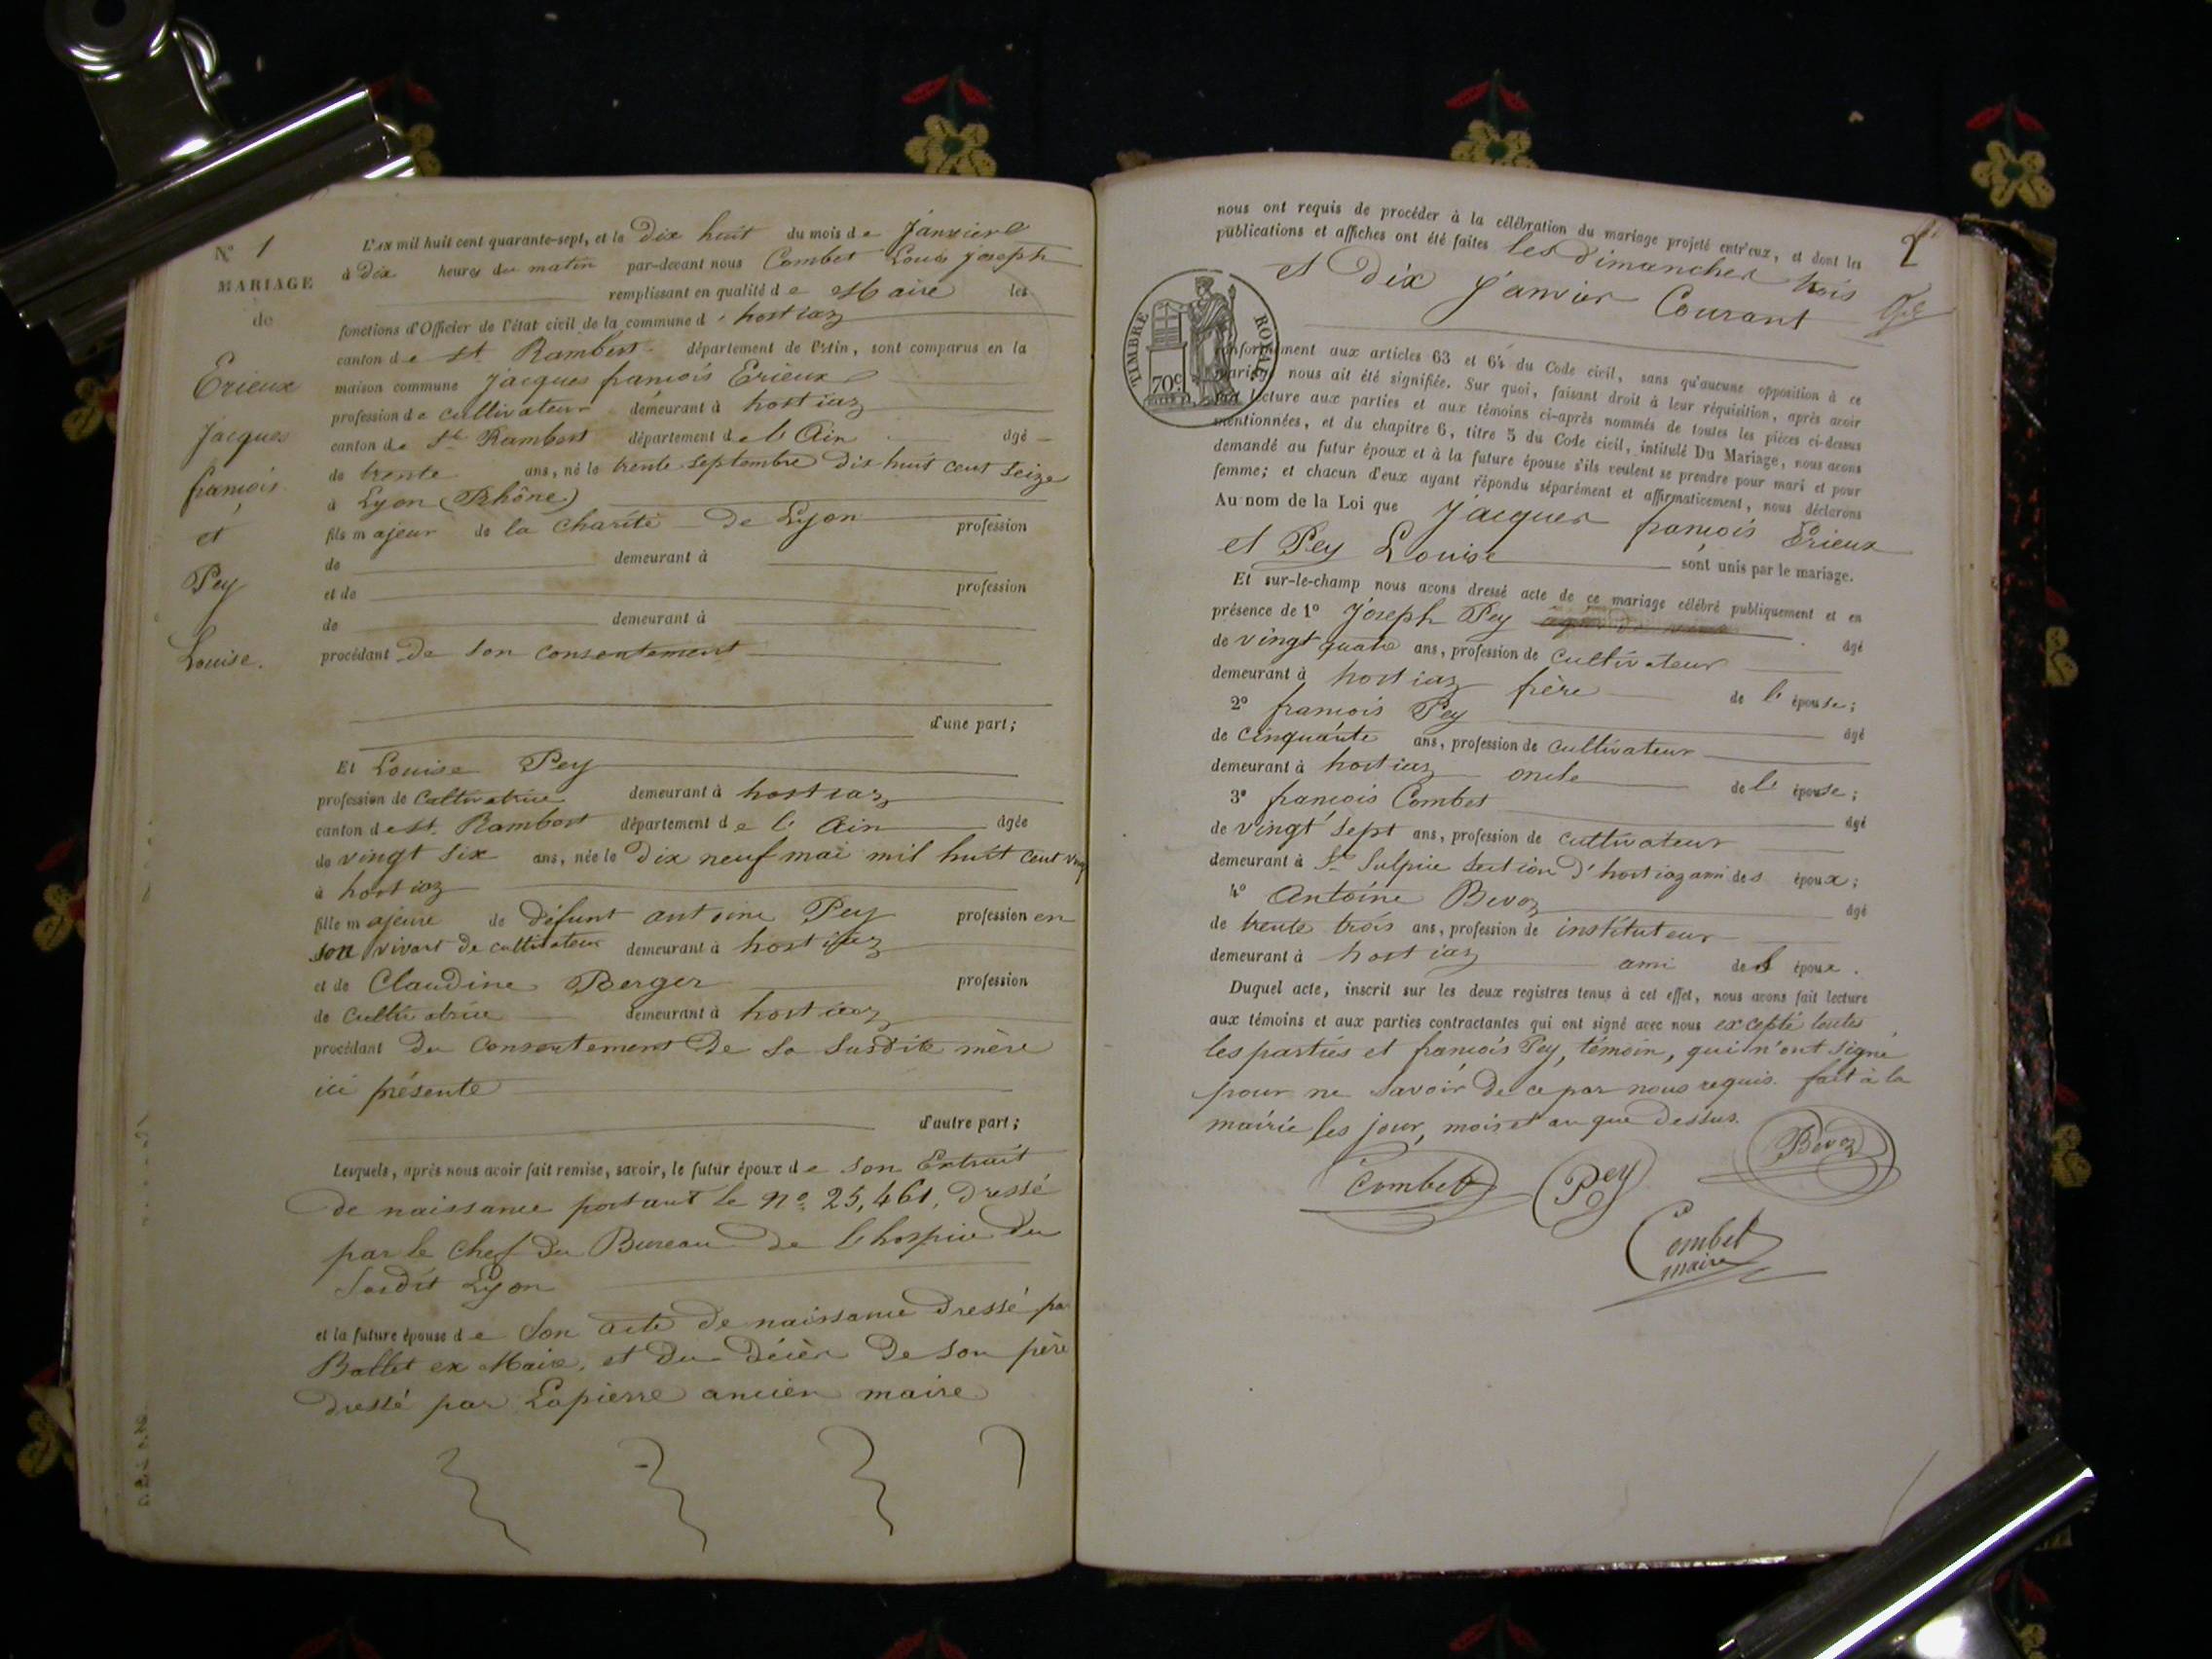 N° 1
MARIAGE
de
Erieux
Jacques
françois
et
Pey
Louise.
L'an mil huit cent quarante-sept, et le Dix huit du mois de Janvier
à Dix heures du matin par-devant nous Combet Louis joseph
remplissant en qualité de Maire les
fonctions d'Officier de l'état civil de la commune d'hostiaz
canton de st Rambert département de l'Ain, sont comparus en la
maison commune Jacques françois Erieux
profession de cultivateur demeurant à hostiaz
canton de St Rambert département de l'Ain âgé
de trente ans, né le trente septembre dix huit cent seize
à Lyon (Rhône)
fils majeur de la charité de Lyon profession
de demeurant à
et de profession
de demeurant à
procédant de son consentement
d'une part;
Et Louise Pey
profession de cultivatrice demeurant à hostiaz
canton de st. Rambert département de l'Ain âgée
de vingt six ans, née le dix neuf mai mil huit cent vingt
à hostiaz
fille majeure de défunt antoine Pey profession en
son vivant de cultivateur demeurant à hostiaz
et de Claudine Berger profession
de cultivatrice demeurant à hostiaz
procédant du consentement de sa susdite mère
ici présente
d'autre part;
Lesquels, après nous avoir fait remise, savoir, le futur époux de son Extrait
de naissance portant le n°. 25,461, dressé
par le chef du Bureau de l'hospice du
susdit Lyon
et la future épouse de son acte de naissance dressé par
Ballet ex Maire, et du décès de son père
dressé par Lapierre ancien maire
2
nous ont requis de procéder à la célébration du mariage projeté entr'eux, et dont les
publications et affiches ont été faites les dimanches trois
et dix janvier Courant
TIMBRE ROYAL
70c
conformément aux articles 63 et 64 du Code civil, sans qu'aucune opposition à ce
mariage nous ait été signifiée. Sur quoi, faisant droit à leur réquisition, après avoir
fait lecture aux parties et aux témoins ci-après nommés de toutes les pièces ci-dessus
mentionnées, et du chapitre 6, titre 5 du Code civil, intitulé Du Mariage, nous avons
demandé au futur époux et à la future épouse s'ils veulent se prendre pour mari et pour
femme; et chacun d'eux ayant répondu séparément et affirmativement, nous déclarons
Au nom de la Loi que Jacques françois Erieux
et Pey Louise sont unis par le mariage.
Et sur-le-champ nous avons dressé acte de ce mariage célébré publiquement et en
présence de 1° Joseph Pey âgé
de vingt quatre ans, profession de cultivateur
demeurant à hostiaz frère de l'épouse;
2° françois Pey âgé
de cinquante ans, profession de cultivateur
demeurant à hostiaz oncle de l'épouse;
3° françois Combet âgé
de vingt sept ans, profession de cultivateur
demeurant à St Sulpice section d'hostiaz ami des époux;
4° Antoine Bevoz âgé
de trente trois ans, profession de instituteur
demeurant à hostiaz ami de l époux.
Duquel acte, inscrit sur les deux registres tenus à cet effet, nous avons fait lecture
aux témoins et aux parties contractantes qui ont signé avec nous excepté toutes
les parties et françois Pey, témoin, qui n'ont signé
pour ne savoir de ce par nous requis. fait à la
mairie les jour, mois et an que dessus.
Combet Pey Bevoz
Combet
maire